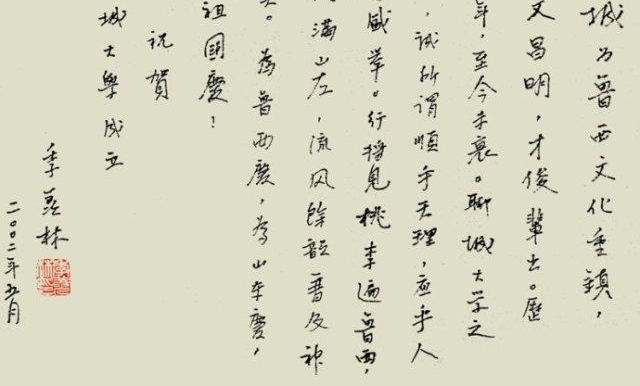 城为鲁西文化重镇，
文昌明，才俊辈出。歷
年，至今未衰。聊城大学之
，诚所谓顺乎天理，应乎人
盛举。行将见桃李遍鲁西，
满山左，流风餘韵普及神
。為鲁西慶，為山东慶，
祖國慶！
祝賀
城大學成立
季羡林
二〇〇二年五月